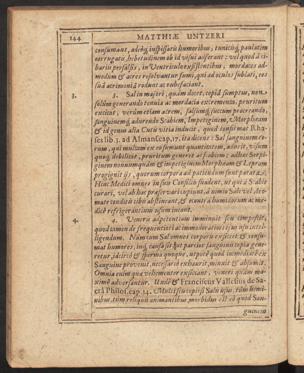 144 MATTHIÆ UNTZERI
consumant, adeóq; inspissatis humoribus, tunicisq; paulatim
corrugatis, hebetudinem ab id visui asserant: vel quod à ci-
bariis persalsis, in Ventriculo existentibus, mordaces ad-
modum & acres resolvantur fumi, qui ad oculos sublati, eos
suâ acrimoniâ rodant ac ruborfaciant.
3.
3. Sal in majori, quàm decet, copiâ sumptus, non
solùm generando tenuia ac mordacia excrementa, pruritum
excitat; verùm etiam acrem, salsumq; succum procreando,
sanguinemq; adurendo Scabiem, Impetiginem, Morphæam
& id genus alia Cutis vitia inducit, quod confirmat Rha-
ses lib. 3. ad Almans. cap. 17. ita dicens: Sal sanguinem eo-
rum, qui multum ex eo sumunt quantitatem, adurit, visum
quoq; debilitat, pruritum generat ac scabiem;
nonnunquam & impetiginem Morphæam & Lepram
progignit &c. quorum corpora ad patiendum sunt parata.
Hinc Medici omnes in suis Consiliis student, ut qui à Scabie
curari, vel ab hac præservari cupiunt, à nimio Salis vel, dro-
mate conditi cibis abstineant, & ejusmodi humidorum ac me-
dicè refrigerantium usum ineant.
4.
4. Venerù appetentiam imminuit seu compescit,
quod tamen de frequentiori ac immoderatiori ejus usu intel-
ligendum. Nam cum Sal omnes corporis exsiccet & consu-
mat humores, inq; causa sit quòd parcius sanguinis copia gene-
retur, facilè & sperma quoque, utpote quod immediatè ex
Sanguine provenit, necessariò exhaurit, minuit & absumit.
Omnia enim quæ vehementer exsiccant, veneri quàm ma-
ximè adversantur. Undè & Franciscus Vallesius de Sa-
crâ Philos. cap. 34. Multus (inquit) Salis usus, cùm homi-
nibus, tùm reliquis animantibus morbidus est eò quod San-
guinem